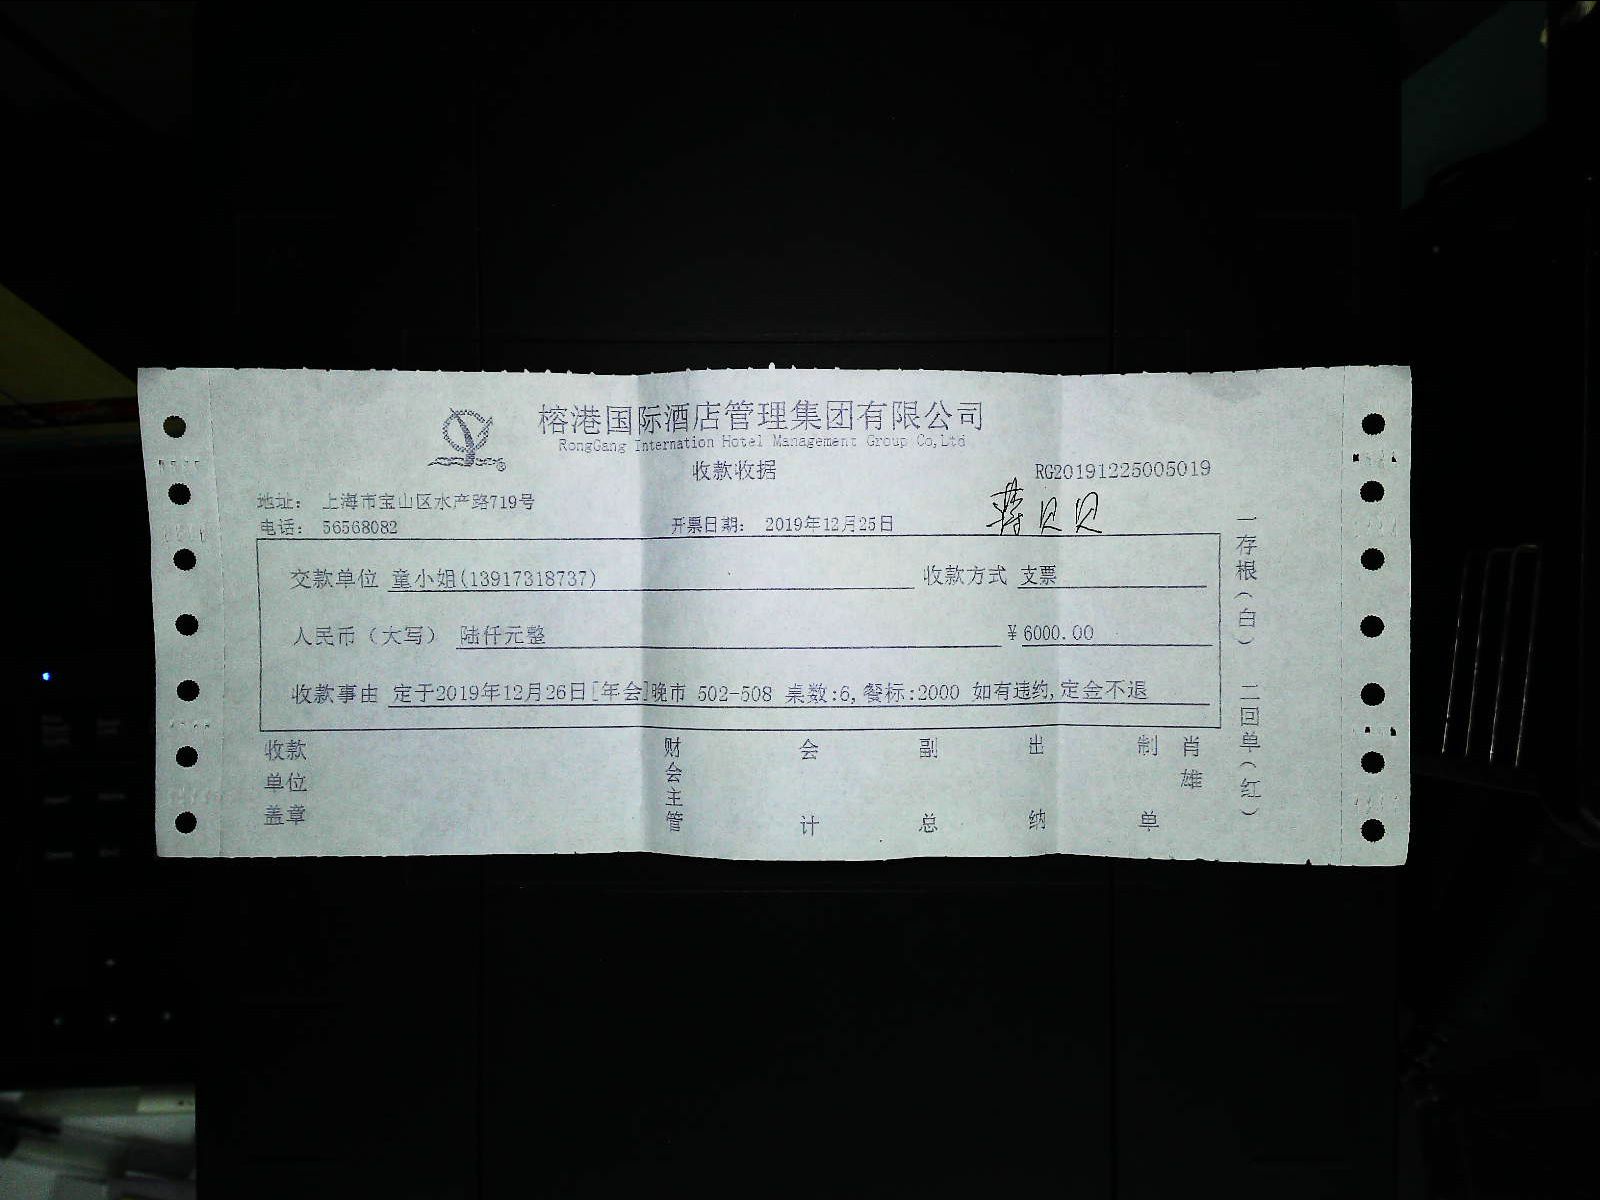 榕港国际酒店管理集团有限公司
RongGang Internation Hotel Management Group Co,Ltd
收款收据
RG20191225005019
地址: 上海市宝山区水产路719号
电话: 56568082
开票日期: 2019年12月25日
蒋贝贝
交款单位 童小姐(13917318737)
收款方式 支票
人民币(大写) 陆仟元整
¥6000.00
收款事由 定于2019年12月26日[年会]晚市 502-508 桌数:6,餐标:2000 如有违约,定金不退
收款单位盖章
财会主管
会计
副总
出纳
制单
肖雄
一存根(白)
二回单(红)